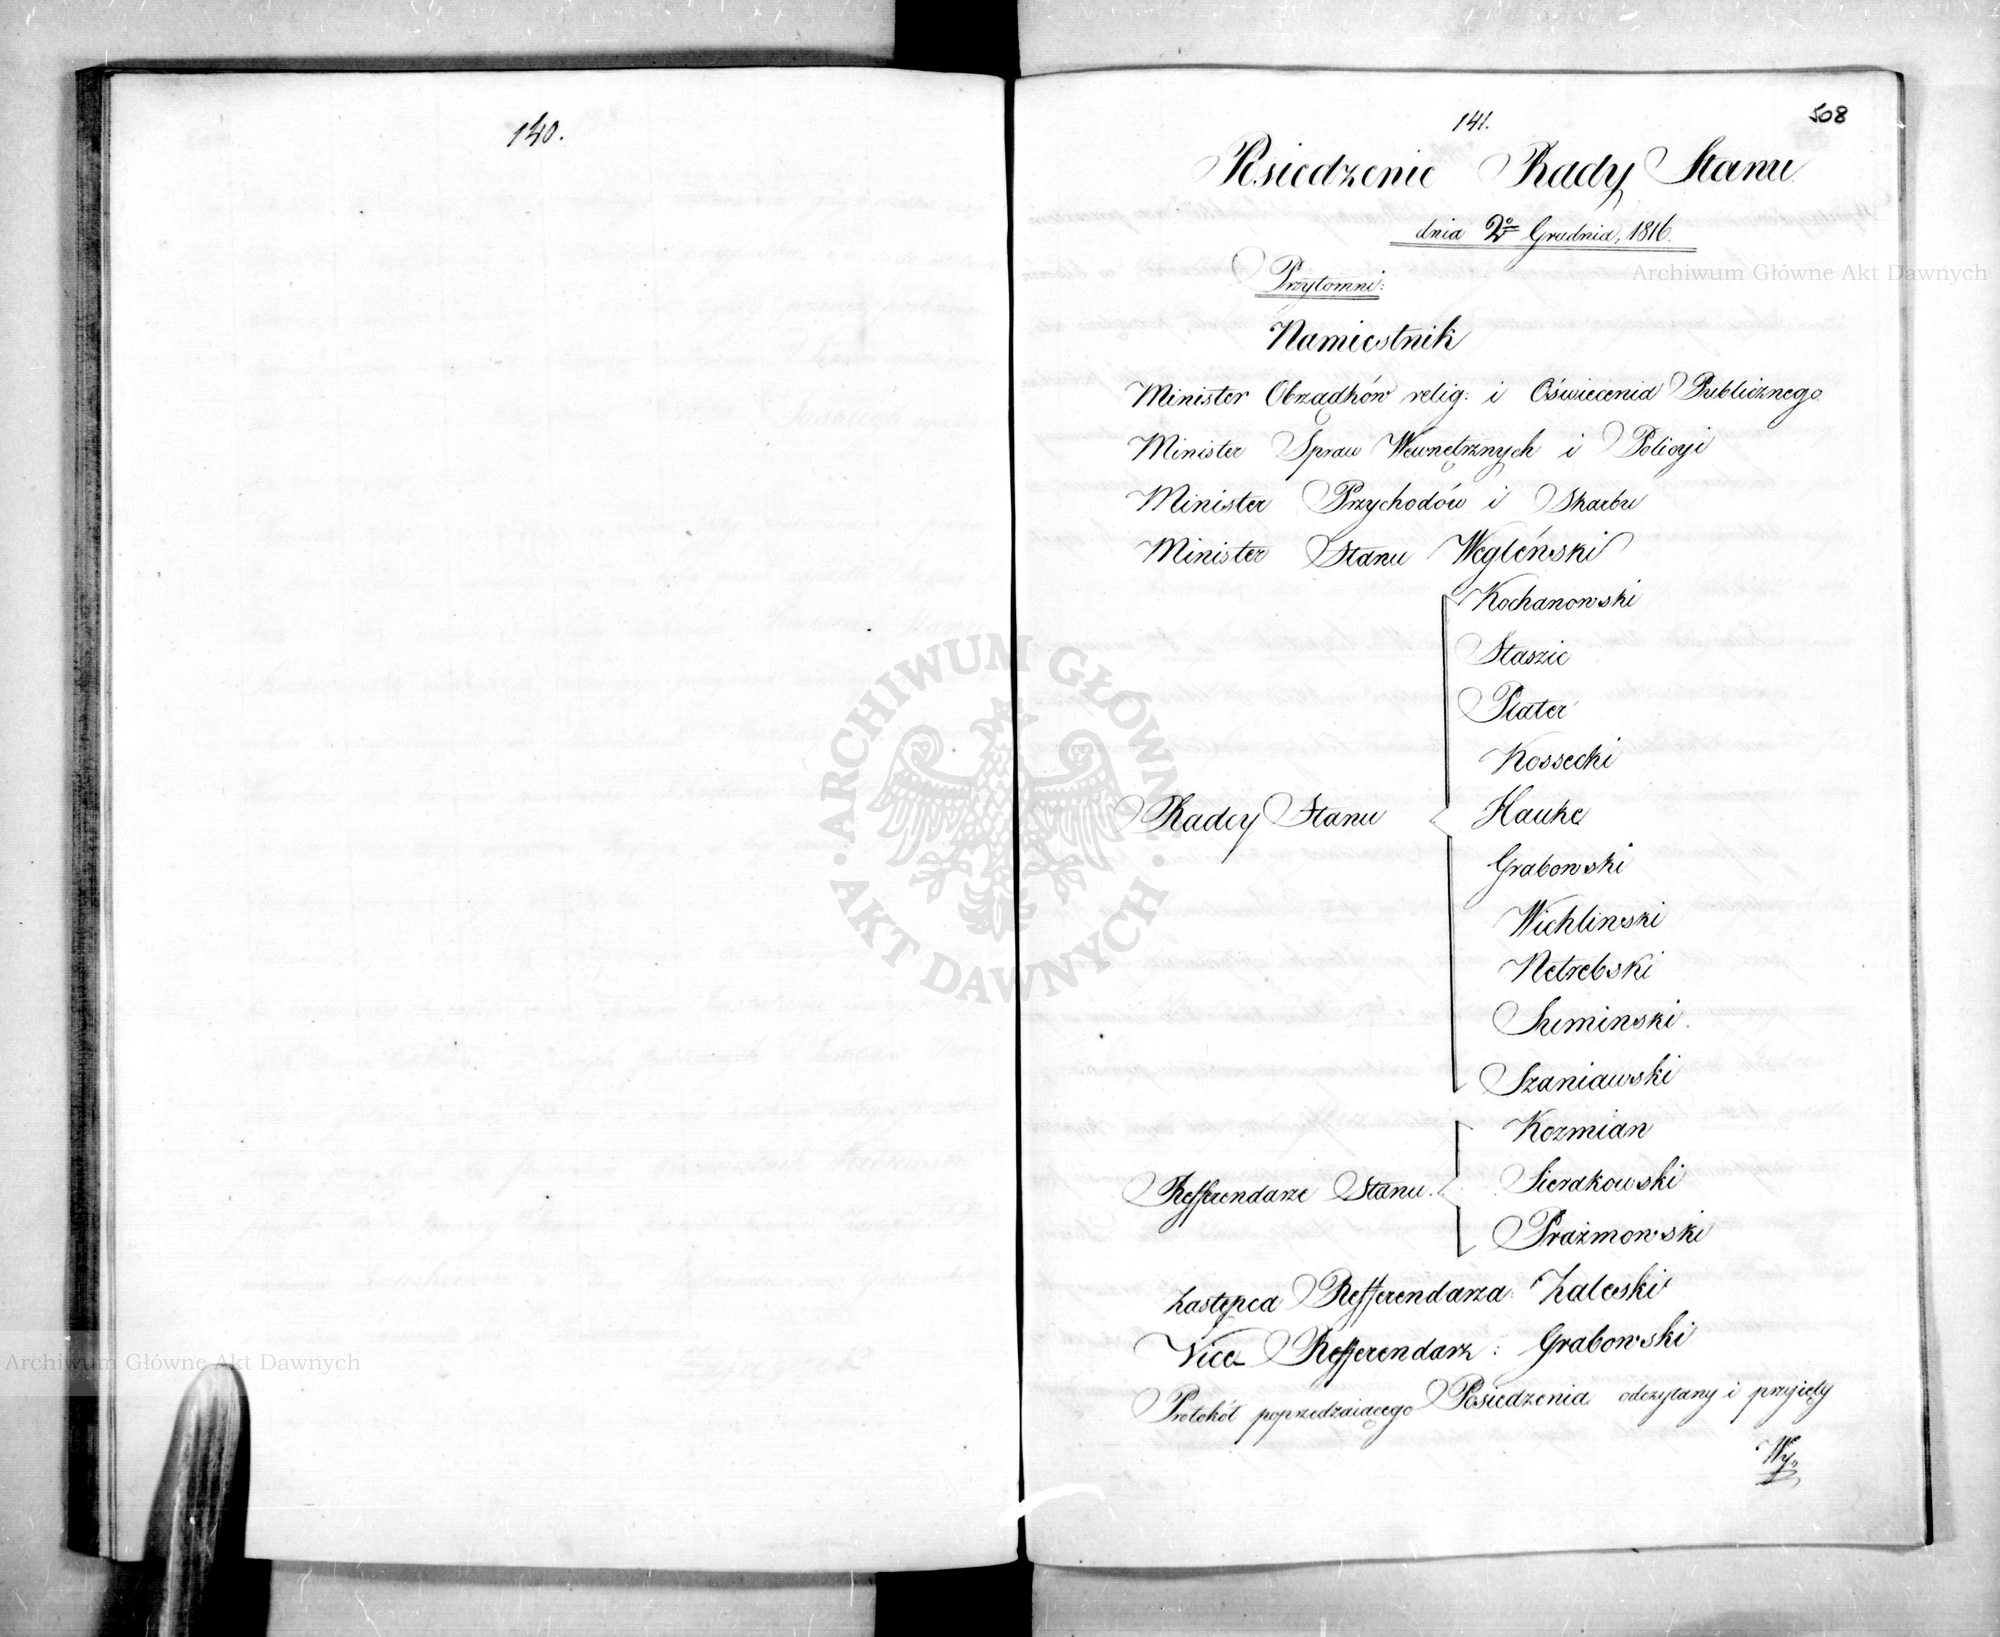 140.
141.
508
Posiedzenie Rady Stanu
dnia 2º Grudnia, 1816.
Przytomni:
Namiestnik
Minister Obrządków relig: i Oświecenia Publicznego
Minister Spraw Wewnętrznych i Policyi
Minister Przychodów i Skarbu
Minister Stanu Węgleński
Kochanowski
Staszic
Plater
Kossecki
Radcy Stanu
Hauke
Grabowski
Wichlinski
Netrebski
Suminski
Szaniawski
Kozmian
Refferendarze Stanu.
Sierakowski
Prażmowski
Zastępca Refferendarza: Zaleski
Vice Refferendarz: Grabowski
Protokół poprzedzaiącego Posiedzenia odczytany i przyięty
Wy„
Archiwum Główne Akt Dawnych
ARCHIWUM GŁÓWNE AKT DAWNYCH
Archiwum Główne Akt Dawnych